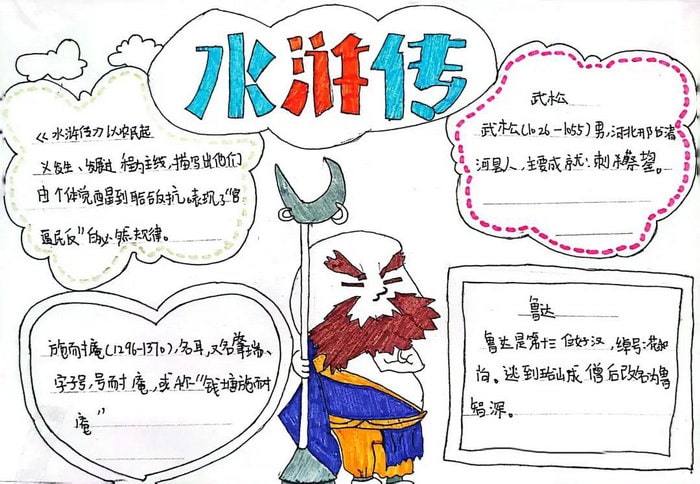 水浒传
《水浒传》以农民起
义发生、发展过程为主线,描写出他们
由个体觉醒到联合反抗。表现了“官
逼民反”的必然规律。
武松
武松(1026-1055)男,河北邢台清
河县人,主要成就:刺杀蔡
施耐庵(1296-1370),名耳,又名肇瑞、
字子安,号耐庵,或称“钱塘施耐
庵”
鲁达
鲁达是第十三位好汉,绰号:花和
尚。逃到 山成僧后改名为鲁
智深。